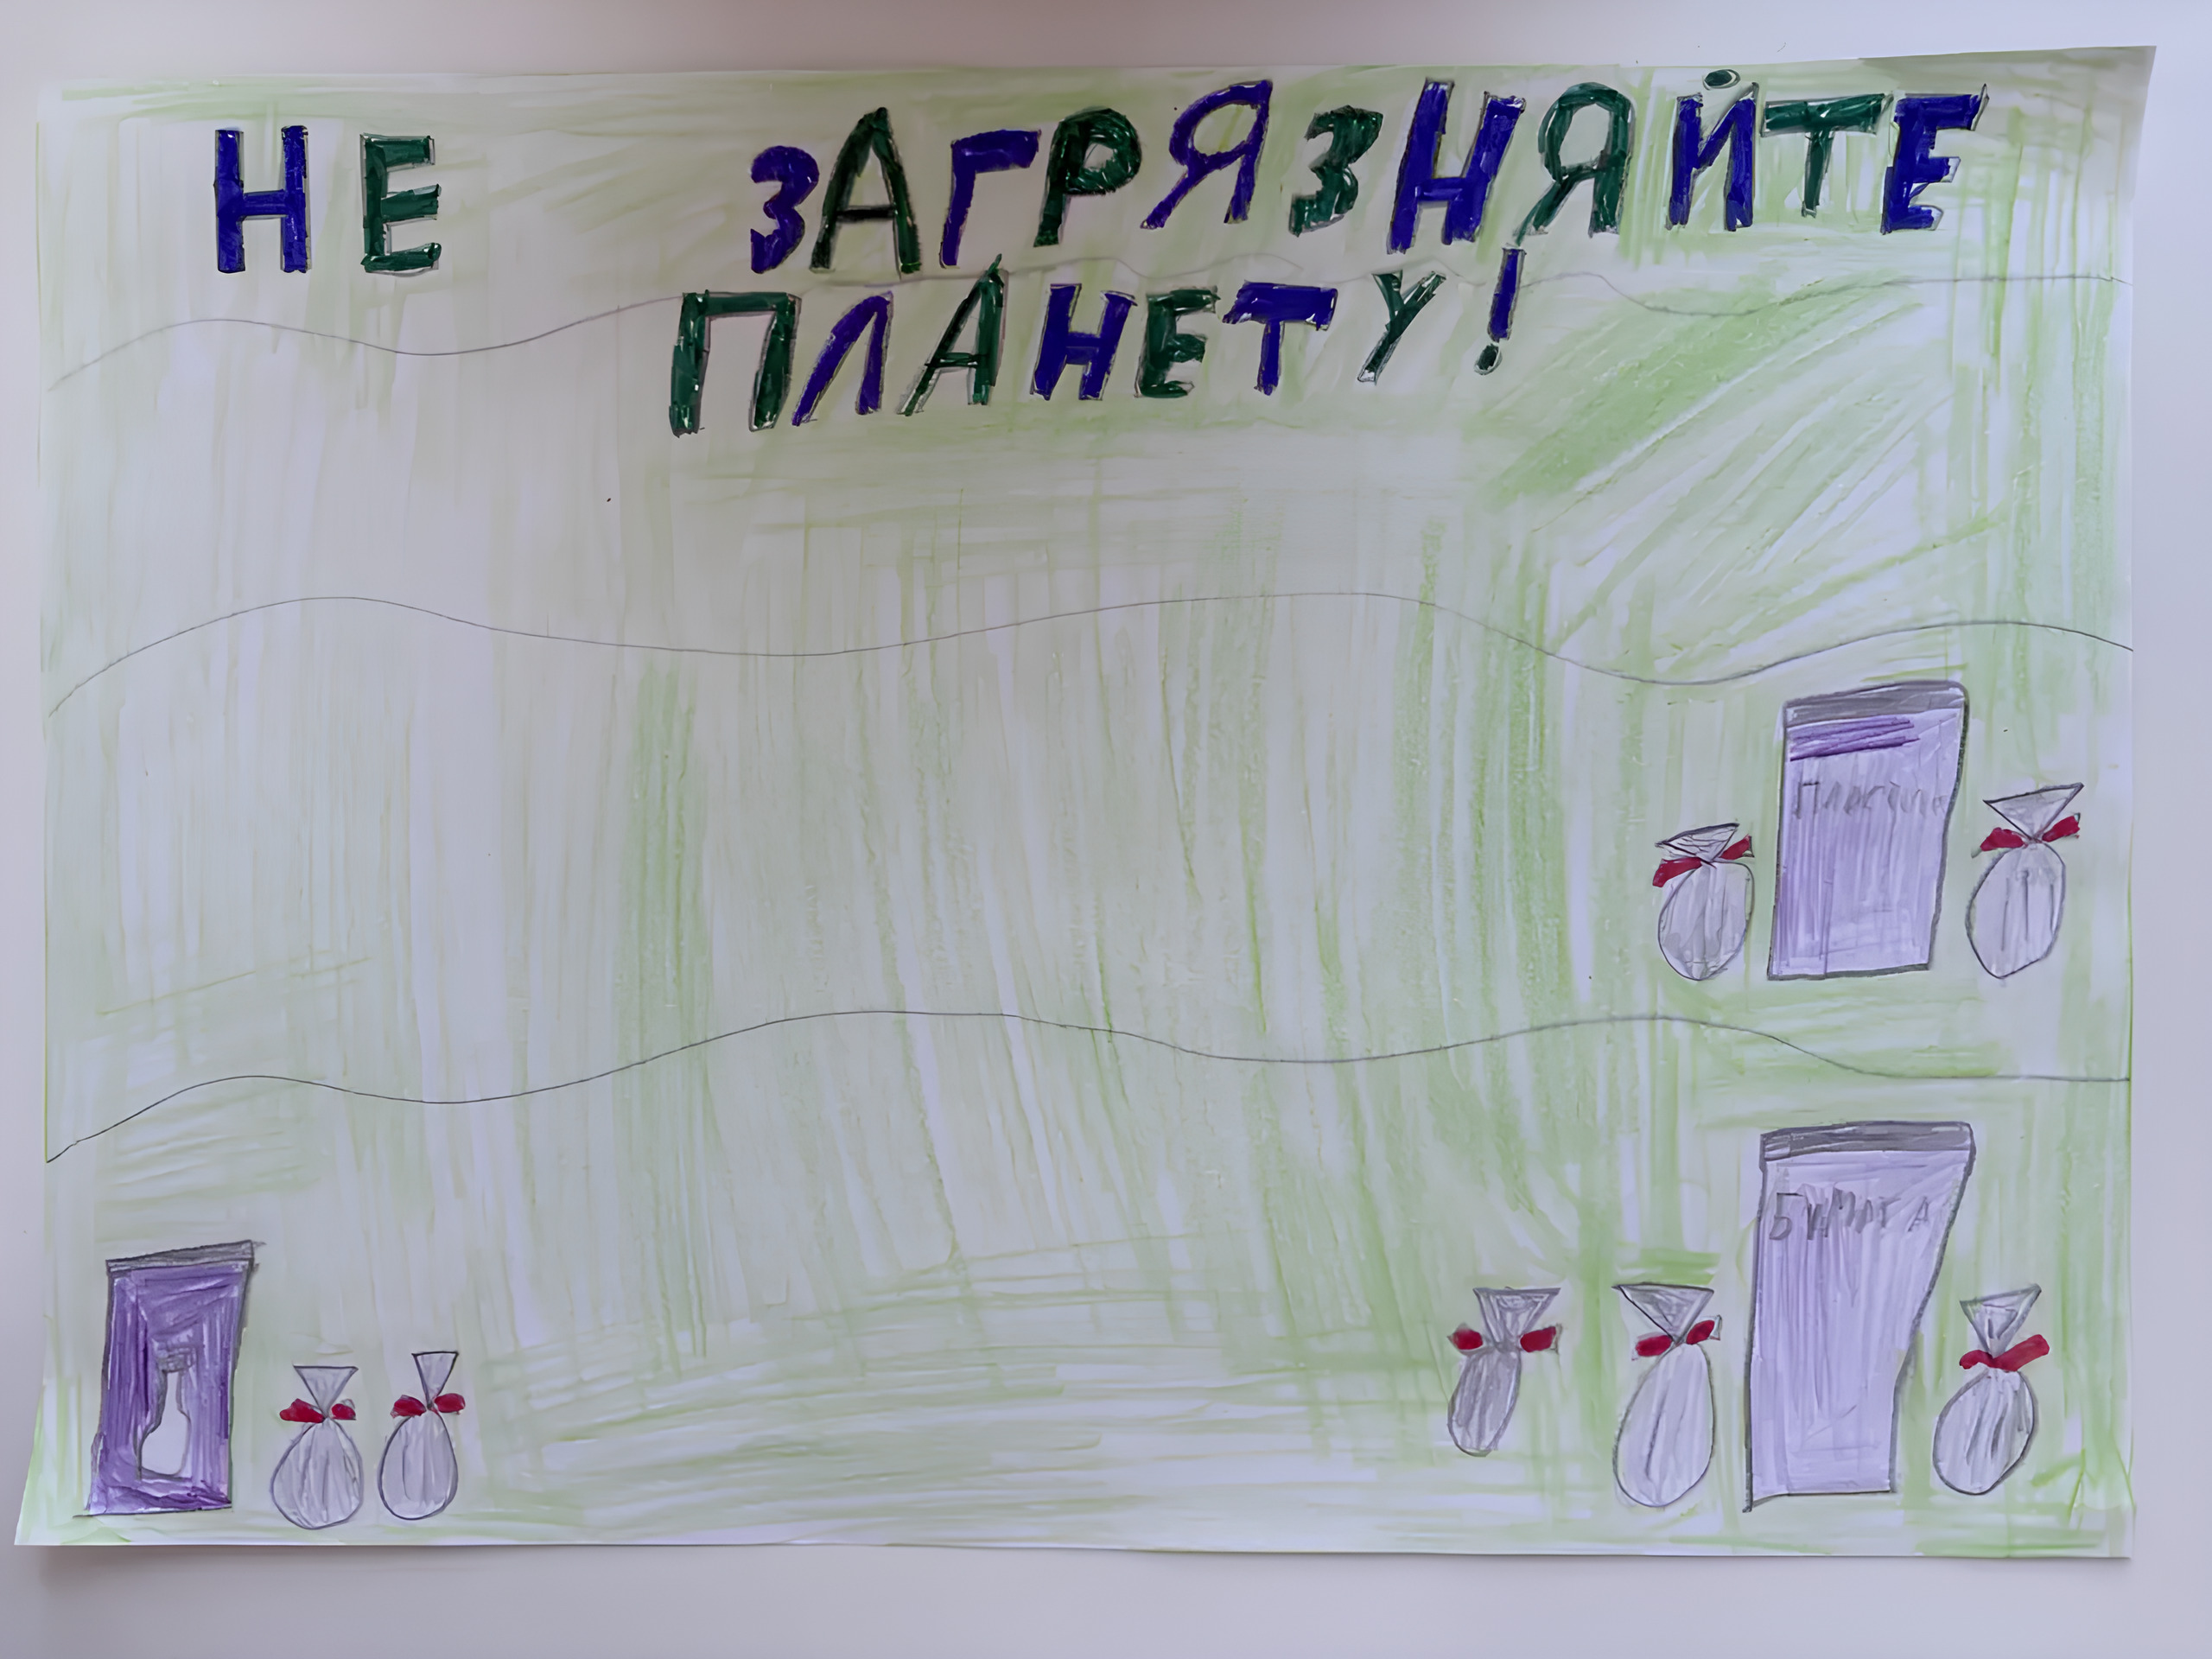 НЕ ЗАГРЯЗНЯЙТЕ
ПЛАНЕТУ!
Пластик
БУМАГА